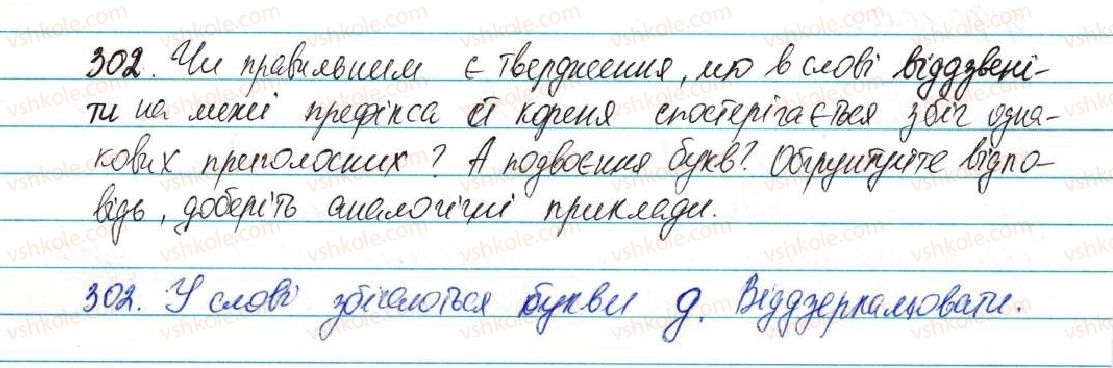 302. Чи правильним є твердження, що в слові віддзвені-
ти на межі префікса й кореня спостерігається збіг одна-
кових приголосних? А подвоєння букв? Обґрунтуйте відпо-
відь, доберіть аналогічні приклади.
302. У слові збігаються букви д. Віддзеркалювати.